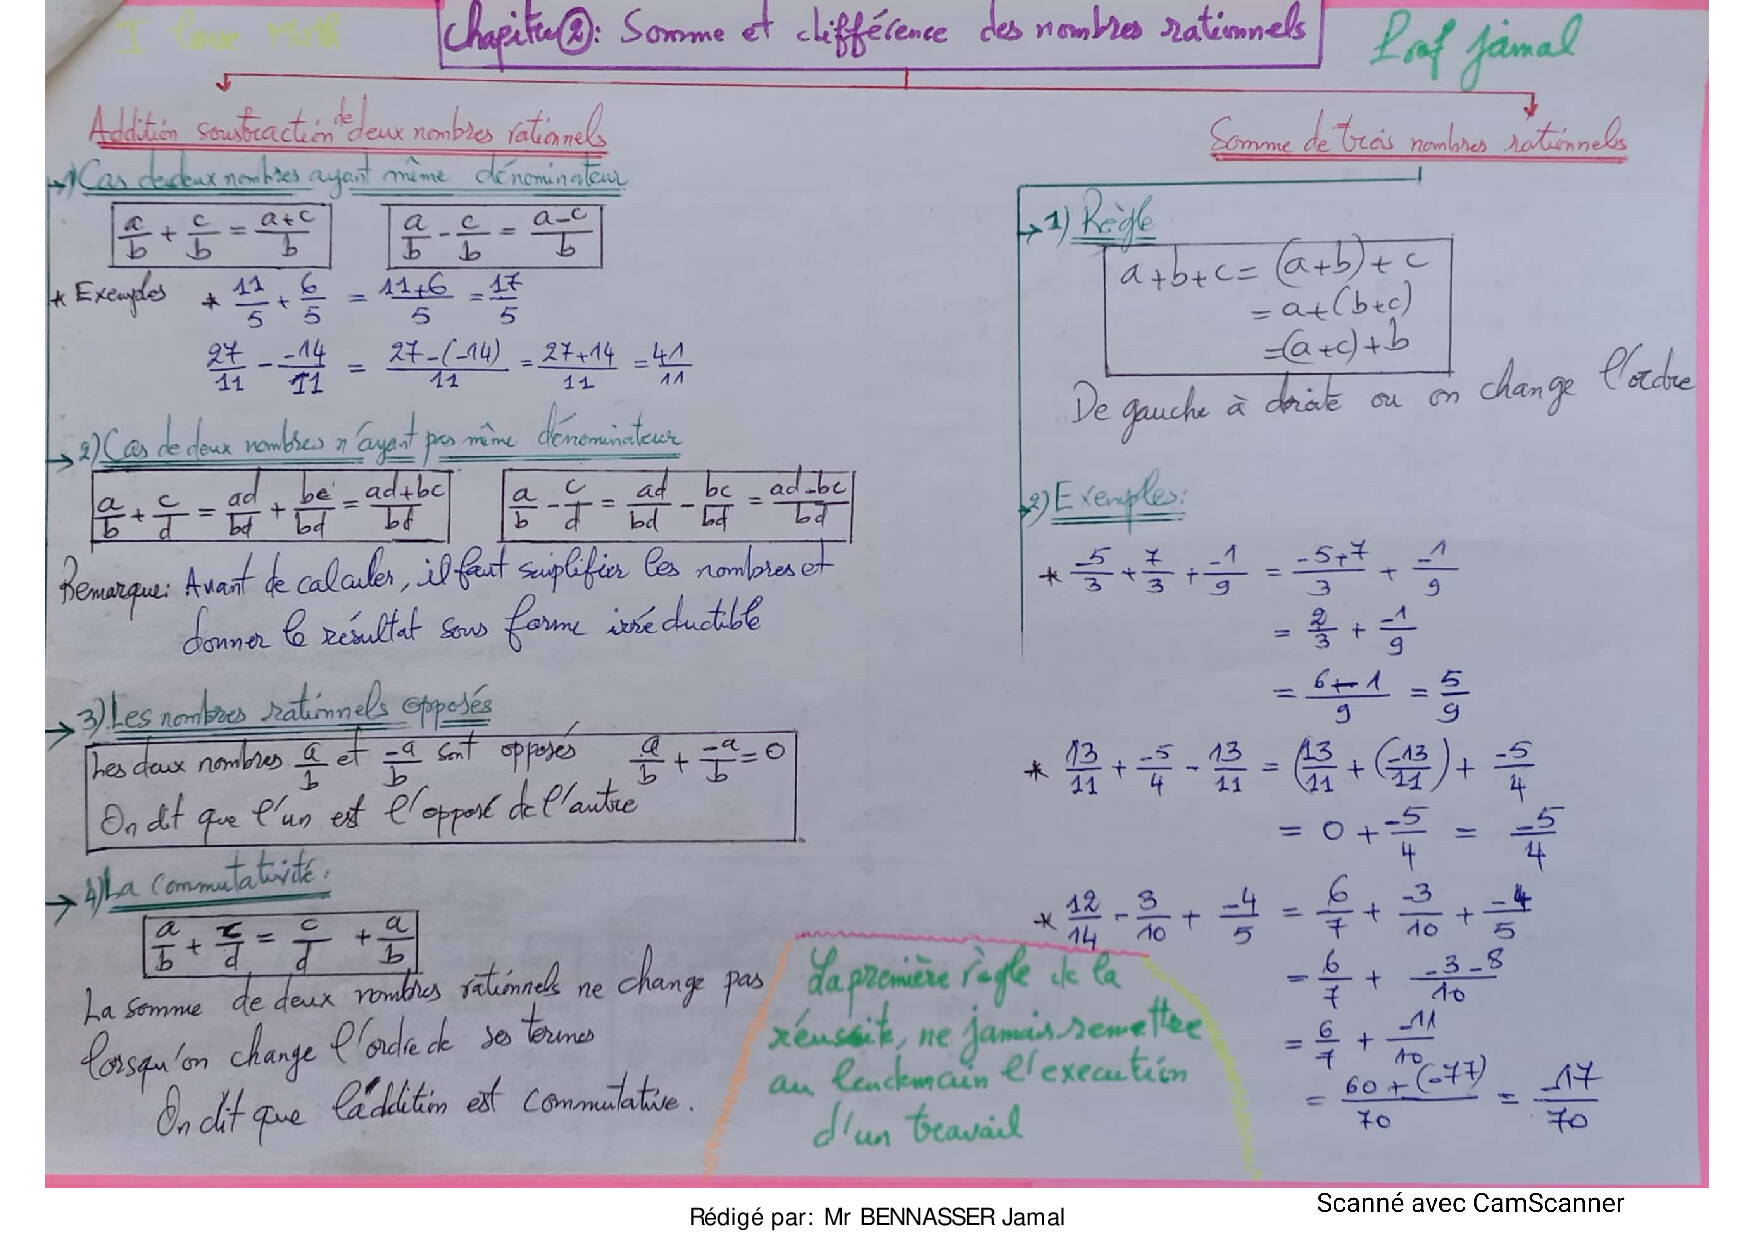 I love Math
Chapitre ②: Somme et différence des nombres rationnels
Prof jamal
Addition soustraction de deux nombres rationnels
1) Cas de deux nombres ayant même dénominateur
a/b + c/b = (a+c)/b    a/b - c/b = (a-c)/b
* Exemples * 11/5 + 6/5 = (11+6)/5 = 17/5
27/11 - (-14)/11 = (27-(-14))/11 = (27+14)/11 = 41/11
2) Cas de deux nombres n'ayant pas même dénominateur
a/b + c/d = ad/bd + bc/bd = (ad+bc)/bd    a/b - c/d = ad/bd - bc/bd = (ad-bc)/bd
Remarque: Avant de calculer, il faut simplifier les nombres et
donner le résultat sous forme irréductible
3) Les nombres rationnels opposés
Les deux nombres a/b et -a/b sont opposés    a/b + -a/b = 0
On dit que l'un est l'opposé de l'autre
4) La commutativité:
a/b + c/d = c/d + a/b
La somme de deux nombres rationnels ne change pas
lorsqu'on change l'ordre de ses termes
On dit que l'addition est commutative.
Somme de trois nombres rationnels
1) Règle
a+b+c = (a+b)+c
= a+(b+c)
= (a+c)+b
De gauche à droite ou on change l'ordre
2) Exemples:
* -5/3 + 7/3 + -1/9 = (-5+7)/3 + -1/9
= 2/3 + -1/9
= (6-1)/9 = 5/9
* 13/11 + -5/4 - 13/11 = (13/11 + (-13/11)) + -5/4
= 0 + -5/4 = -5/4
* 12/14 - 3/10 + -4/5 = 6/7 + -3/10 + -4/5
= 6/7 + (-3-8)/10
= 6/7 + -11/10
= (60+(-77))/70 = -17/70
La première règle de la
réussite, ne jamais remettre
au lendemain l'execution
d'un travail
Scanné avec CamScanner
Rédigé par: Mr BENNASSER Jamal